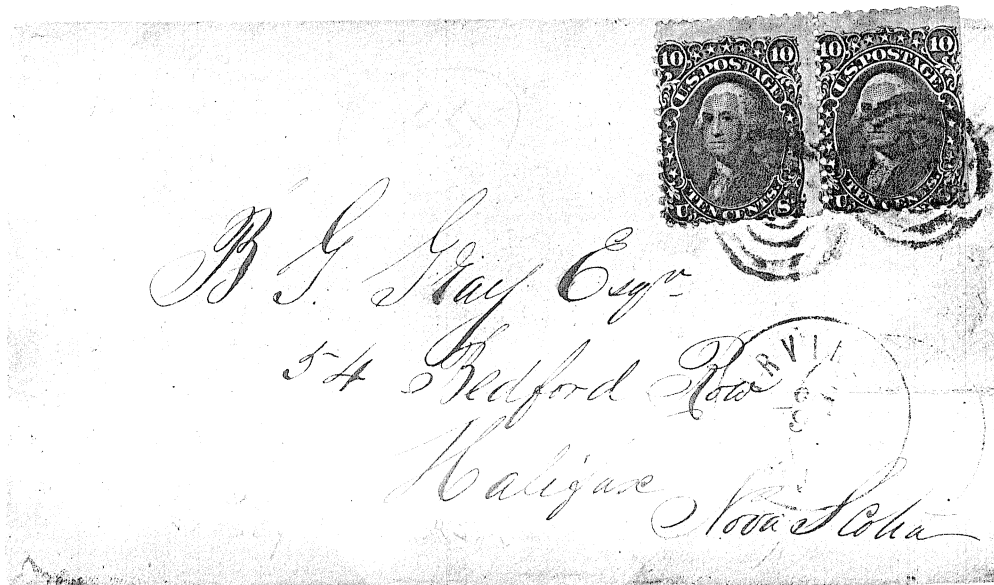 10 10
U.S. POSTAGE
TEN CENTS
U S
10 10
U.S. POSTAGE
TEN CENTS
U
B G. Gray Esqr
54 Bedford Row
RVIL
Halifax
Nova Scotia